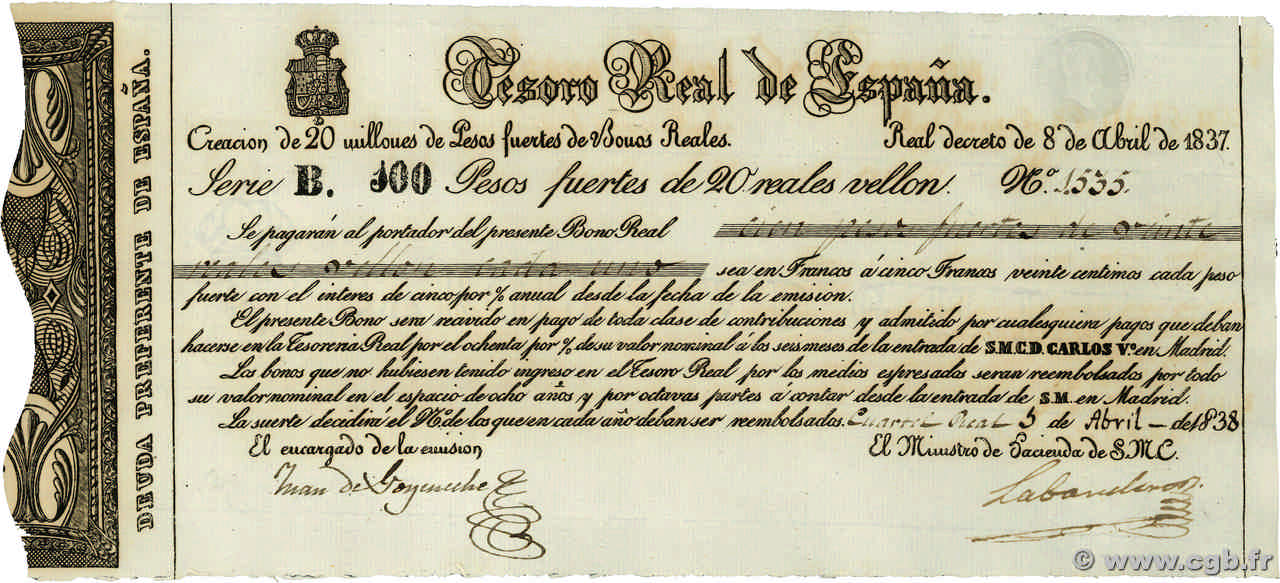 Tesoro Real de España.
Creacion de 20 millones de Pesos fuertes de Bonos Reales. Real decreto de 8 de Abril de 1837.
Serie B. 100 Pesos fuertes de 20 reales vellon. Nº. 1535.
Se pagarán al portador del presente Bono Real cien pesos fuertes de veinte
reales vellon cada uno sea en Francos á cinco Francos veinte centimos cada peso
fuerte con el interes de cinco por % anual desde la fecha de la emision.
El presente Bono sera recivido en pago de toda clase de contribuciones y admitido por cualesquiera pagos que deban
hacerse en la Tesoreria Real por el ochenta por % de su valor nominal á los seis meses de la entrada de S.M.C.D. CARLOS Vº. en Madrid.
Los bonos que no hubiesen tenido ingreso en el Tesoro Real por los medios espresados seran reembolsados por todo
su valor nominal en el espacio de ocho años y por octavas partes á contar desde la entrada de S.M. en Madrid.
La suerte decidirá el Nº. de los que en cada año deban ser reembolsados. Cuartel Real 5 de Abril - de 1838
El encargado de la emision El Ministro de Hacienda de S.M.C.
Juan de Goyeneche Labandero
DEUDA PREFERENTE DE ESPAÑA.
© www.cgb.fr